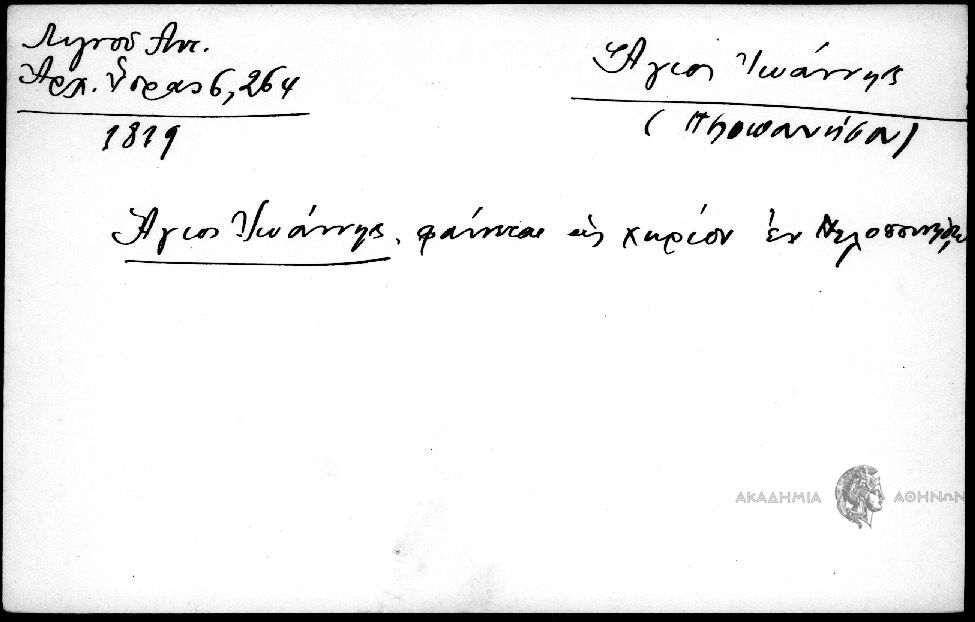 Λιγνοῦ Ἀντ.
Ἀρχ. Ὕδρας 6, 264
1819
Ἅγιος Ἰωάννης
(Πελοπαννήσου)
Ἅγιος Ἰωάννης, φαίνεται ὡς χωρίον ἐν Πελοποννήσῳ
ΑΚΑΔΗΜΙΑ ΑΘΗΝΩΝ